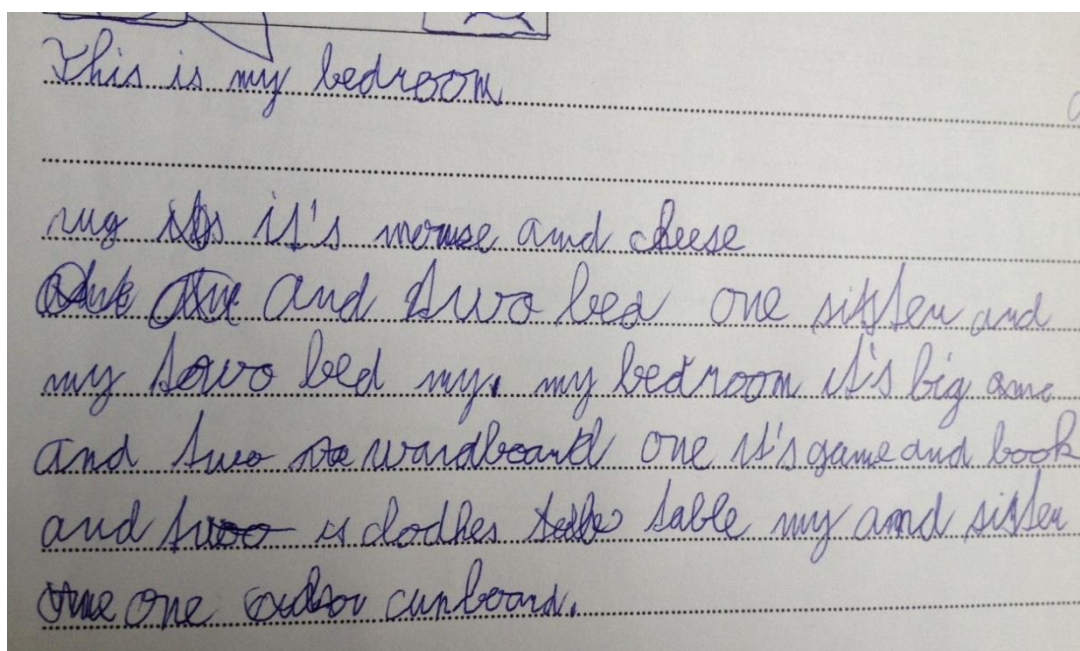 This is my bedroom
rug it's mouse and cheese
and two bed one sitster and
my towo bed my. my bedroom it's big one
and two wardboard one it's game and book
and two is clodhes table my and sister
one one cunboard.